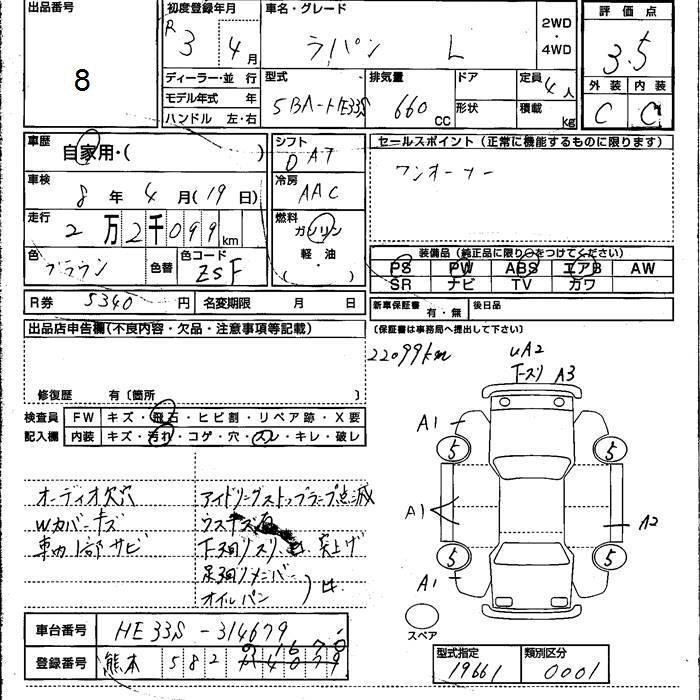 出品番号 8
初度登録年月 R 3 4月
車名・グレード ラパン L
2WD・4WD
評価点 3.5
外装 C 内装 C
ディーラー・並行
モデル年式 年
ハンドル 左・右
型式 5BA-HE33S
排気量 660 CC
ドア 形状
定員 4人
積載 kg
車歴 自家用・( )
車検 8年4月(19日)
走行 2万2千099km
色 ブラウン 色替
色コード ZSF
シフト DAT
冷房 AAC
燃料 ガソリン 軽・油 ( )
セールスポイント(正常に機能するものに限ります)
ワンオーナー
装備品(純正品に限り○をつけてください)
PS PW ABS エアB AW
SR ナビ TV カワ
R券 5340円 名変期限 月 日
新車保証書 有・無 後日品
(保証書は事務局へ提出して下さい)
出品店申告欄(不良内容・欠品・注意事項等記載)
修復歴 有〔箇所 〕
22099km
UA2
下スリ A3
検査員記入欄
FW キズ・飛石・ヒビ割・リペア跡・X要
内装 キズ・汚れ・コゲ・穴・スレ・キレ・破レ
オーディオ欠穴
Wカバーキズ
車内1部サビ
アイドリングストップランプ点滅
ウスキズ有
下廻りスリ 突上げ
足廻りメンバー
オイルパン
A1
5 5
A1
A2
5 5
A1
スペア
車台番号 HE33S-314679
登録番号 熊本 582
型式指定 19661
類別区分 0001